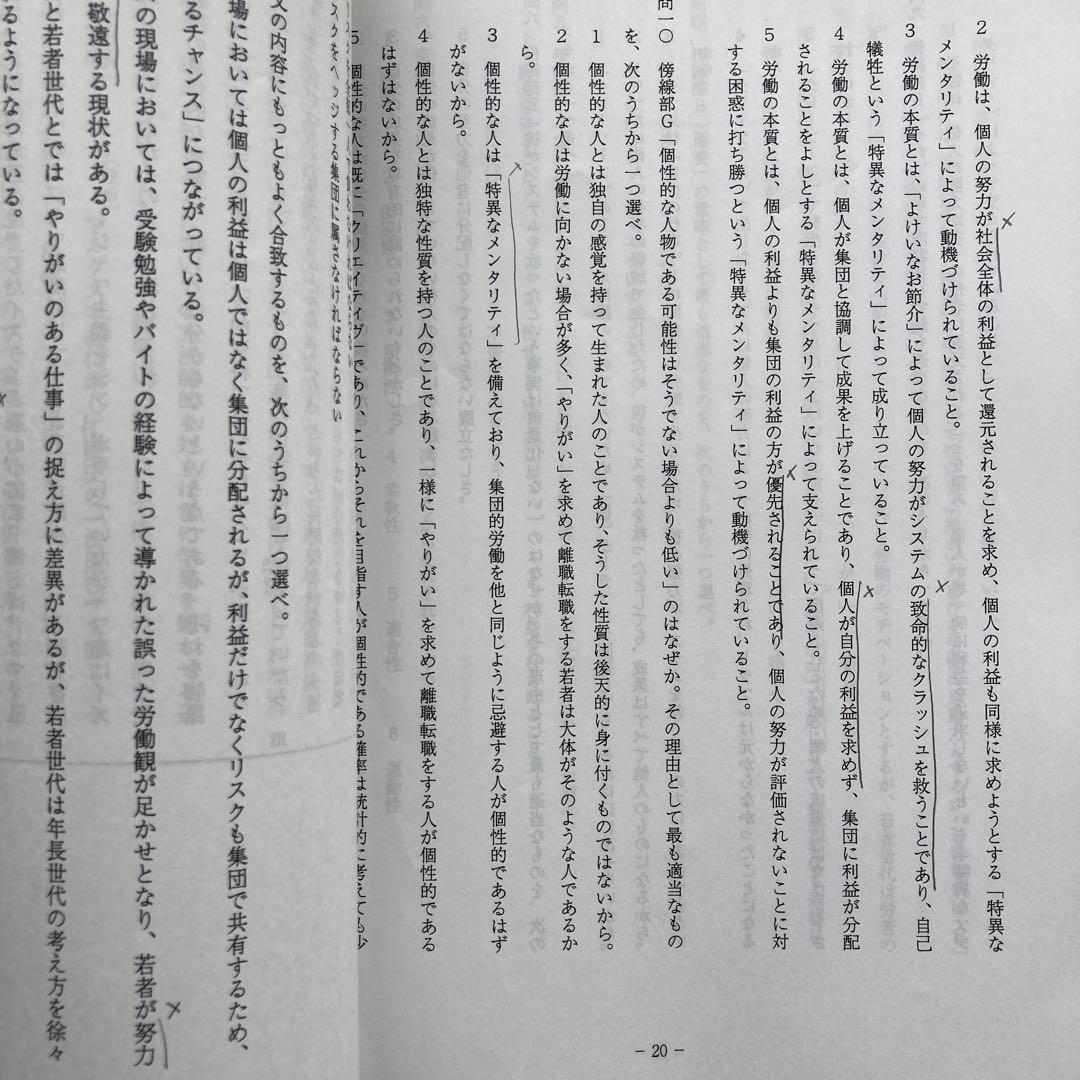 2　労働は、個人の努力が社会全体の利益として還元されることを求め、個人の利益も同様に求めようとする「特異な
メンタリティ」によって動機づけられていること。
3　労働の本質とは、「よけいなお節介」によって個人の努力がシステムの致命的なクラッシュを救うことであり、自己
犠牲という「特異なメンタリティ」によって成り立っていること。
4　労働の本質とは、個人が集団と協調して成果を上げることであり、個人が自分の利益を求めず、集団に利益が分配
されることをよしとする「特異なメンタリティ」によって支えられていること。
5　労働の本質とは、個人の利益よりも集団の利益の方が優先されることであり、個人の努力が評価されないことに対
する困惑に打ち勝つという「特異なメンタリティ」によって動機づけられていること。
問一〇　傍線部G「個性的な人物である可能性はそうでない場合よりも低い」のはなぜか。その理由として最も適当なもの
を、次のうちから一つ選べ。
1　個性的な人とは独自の感覚を持って生まれた人のことであり、そうした性質は後天的に身に付くものではないから。
2　個性的な人は労働に向かない場合が多く、「やりがい」を求めて離職転職をする若者は大体がそのような人であるか
ら。
3　個性的な人は「特異なメンタリティ」を備えており、集団的労働を他と同じように忌避する人が個性的であるはず
がないから。
4　個性的な人とは独特な性質を持つ人のことであり、一様に「やりがい」を求めて離職転職をする人が個性的である
はずはないから。
5　個性的な人は既に「クリエイティヴ」であり、これからそれを目指す人が個性的である確率は統計的に考えても少
スクをヘッジする集団に属さなければならない
文の内容にもっともよく合致するものを、次のうちから一つ選べ。
場においては個人の利益は個人ではなく集団に分配されるが、利益だけでなくリスクも集団で共有するため、
るチャンス」につながっている。
の現場においては、受験勉強やバイトの経験によって導かれた誤った労働観が足かせとなり、若者が努力
敬遠する現状がある。
と若者世代とでは「やりがいのある仕事」の捉え方に差異があるが、若者世代は年長世代の考え方を徐々
るようになっている。
― 20 ―